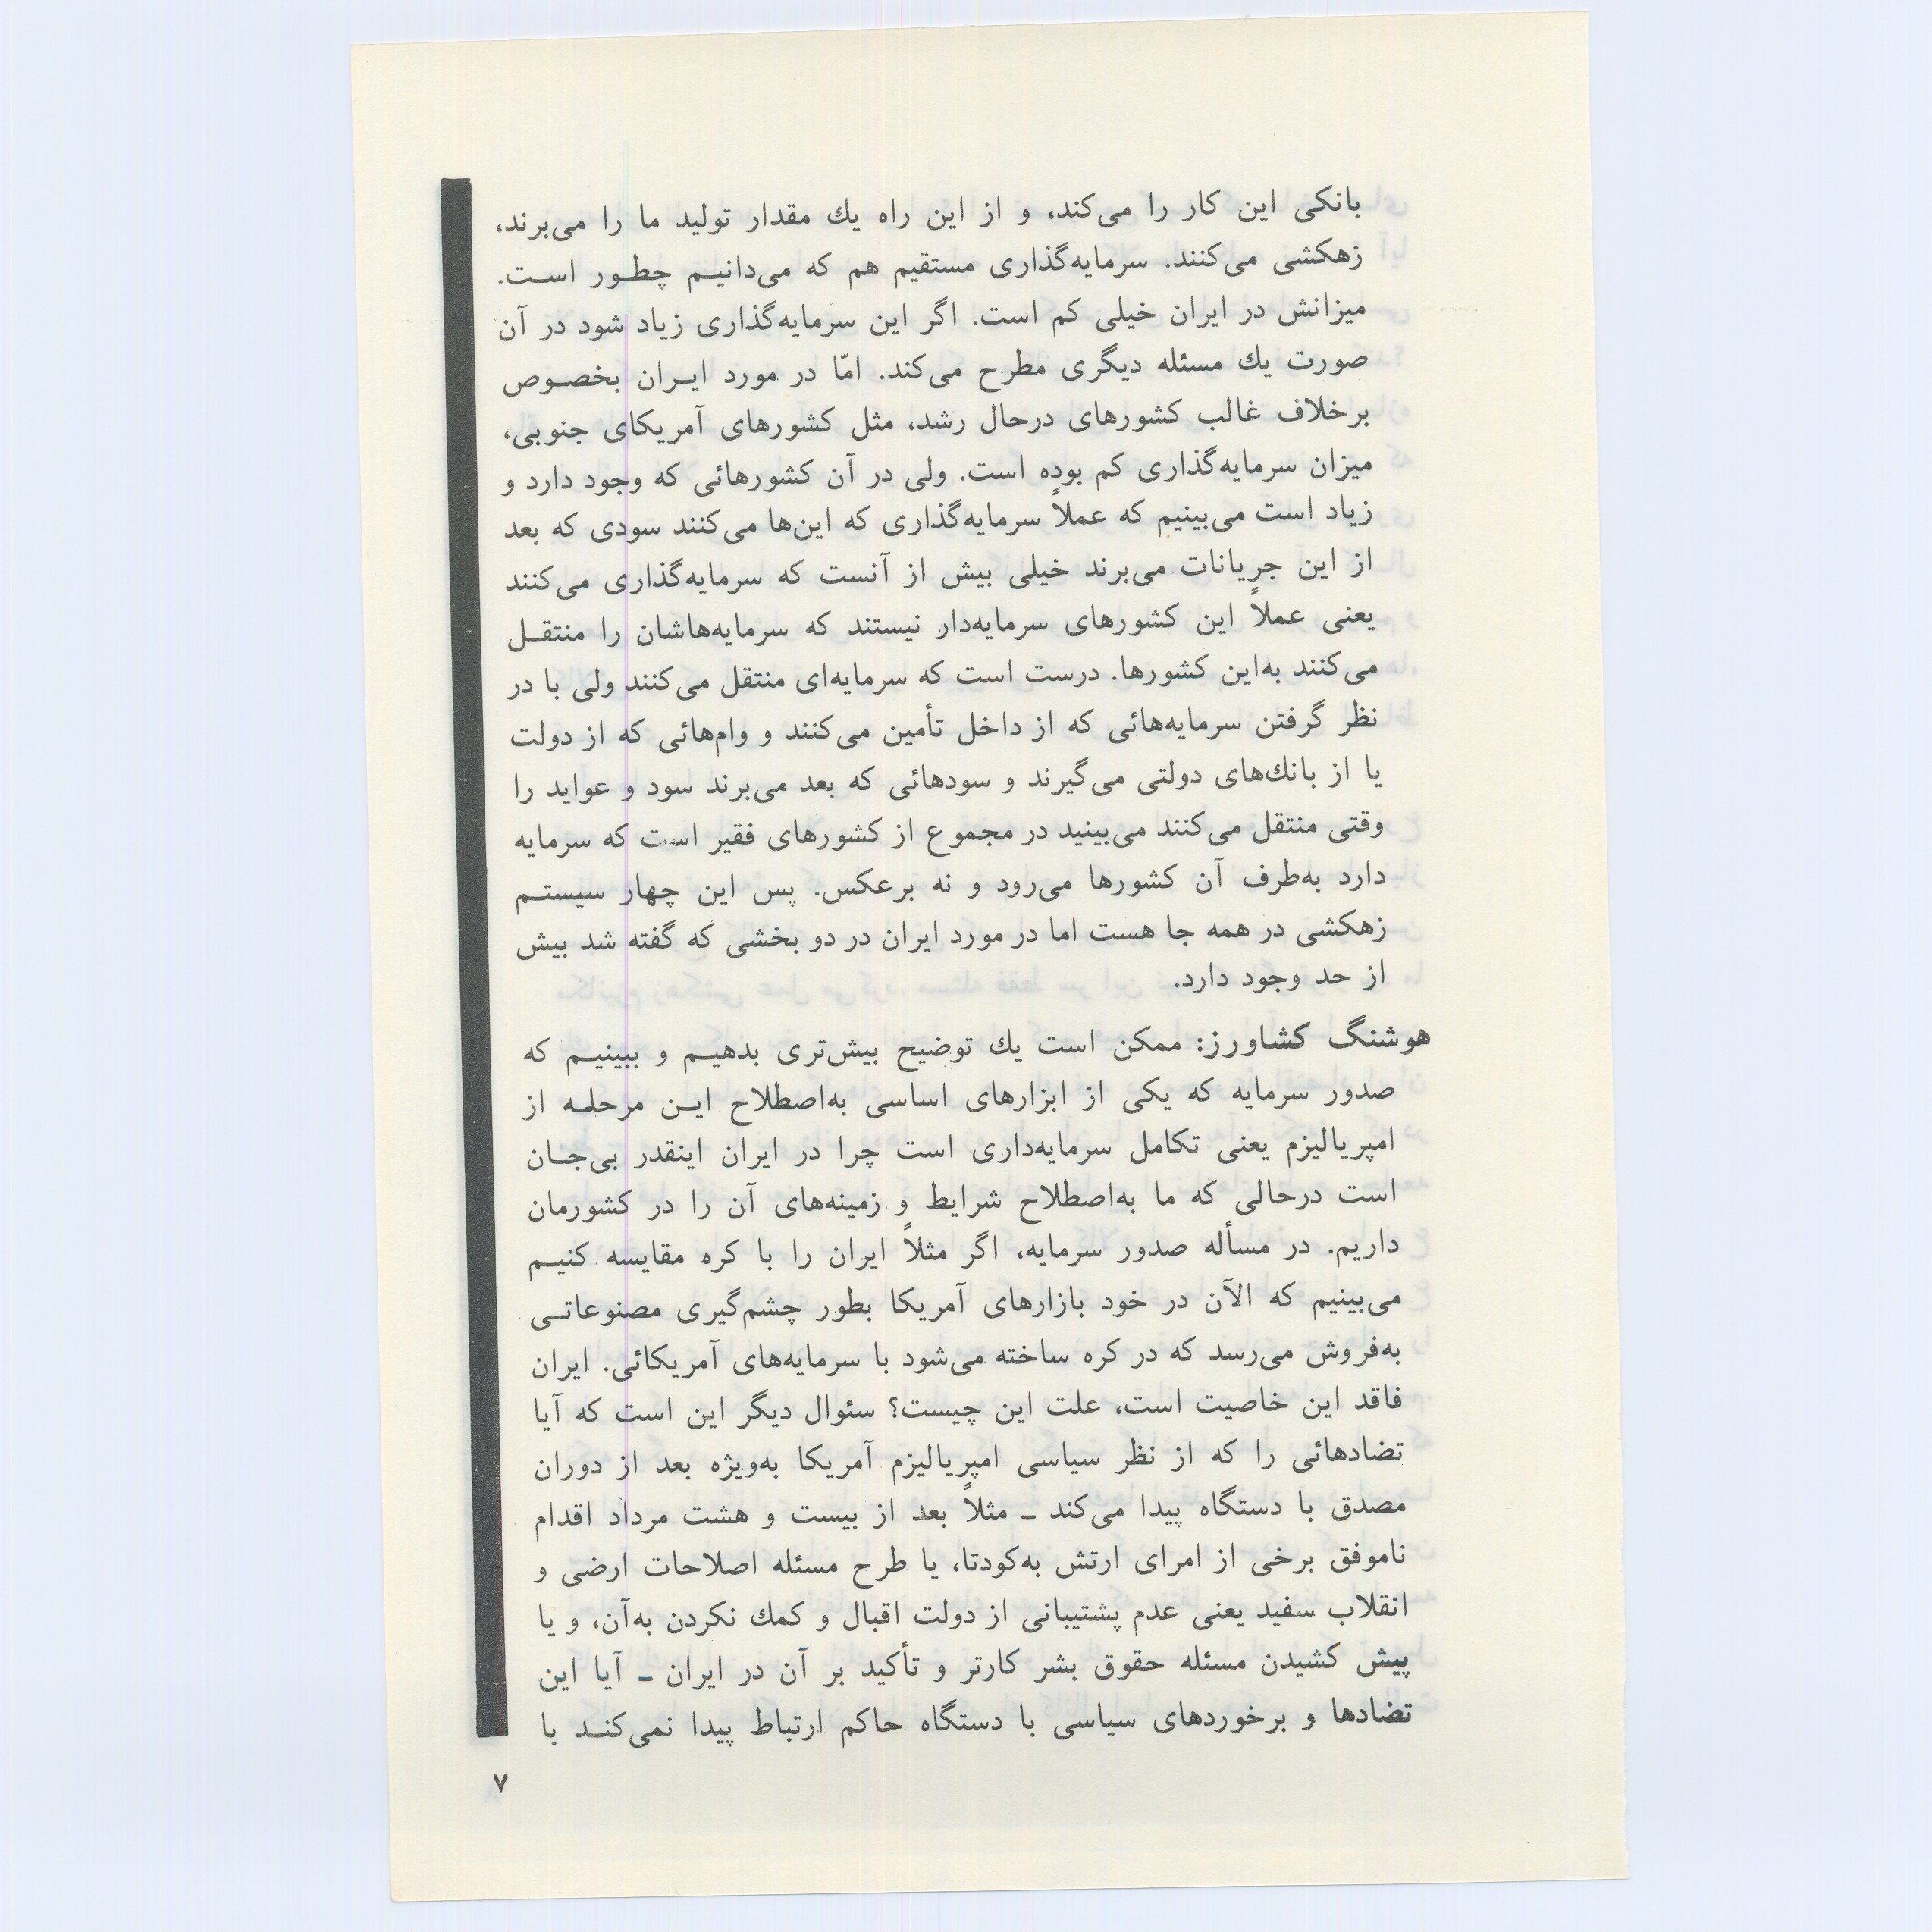 بانکی این کار را می‌کند، و از این راه یك مقدار تولید ما را می‌برند،
زهکشی می‌کنند. سرمایه‌گذاری مستقیم هم که می‌دانیـم چطـور اسـت.
میزانش در ایران خیلی کم است. اگر این سرمایه‌گذاری زیاد شود در آن
صورت یك مسئله دیگری مطرح می‌کند. امّا در مورد ایـران بخصـوص
برخلاف غالب کشورهای درحال رشد، مثل کشورهای آمریکای جنوبی،
میزان سرمایه‌گذاری کم بوده است. ولی در آن کشورهائی که وجود دارد و
زیاد است می‌بینیم که عملاً سرمایه‌گذاری که این‌ها می‌کنند سودی که بعد
از این جریانات می‌برند خیلی بیش از آنست که سرمایه‌گذاری می‌کنند
یعنی عملاً این کشورهای سرمایه‌دار نیستند که سرمایه‌هاشان را منتقـل
می‌کنند به‌این کشورها. درست است که سرمایه‌ای منتقل می‌کنند ولی با در
نظر گرفتن سرمایه‌هائی که از داخل تأمین می‌کنند و وام‌هائی که از دولت
یا از بانك‌های دولتی می‌گیرند و سودهائی که بعد می‌برند سود و عواید را
وقتی منتقل می‌کنند می‌بینید در مجموع از کشورهای فقیر است که سرمایه
دارد به‌طرف آن کشورها می‌رود و نه برعکس. پس این چهار سیستـم
زهکشی در همه جا هست اما در مورد ایران در دو بخشی که گفته شد بیش
از حد وجود دارد.
هوشنگ کشاورز: ممکن است یك توضیح بیش‌تری بدهیـم و ببینیـم که
صدور سرمایه که یکی از ابزارهای اساسی به‌اصطلاح ایـن مرحلـه از
امپریالیزم یعنی تکامل سرمایه‌داری است چرا در ایران اینقدر بی‌جـان
است درحالی که ما به‌اصطلاح شرایط و زمینه‌های آن را در کشورمان
داریم. در مسأله صدور سرمایه، اگر مثلاً ایران را با کره مقایسه کنیـم
می‌بینیم که الآن در خود بازارهای آمریکا بطور چشم‌گیری مصنوعاتـی
به‌فروش می‌رسد که در کره ساخته می‌شود با سرمایه‌های آمریکائی. ایران
فاقد این خاصیت است، علت این چیست؟ سئوال دیگر این است که آیا
تضادهائی را که از نظر سیاسی امپریالیزم آمریکا به‌ویژه بعد از دوران
مصدق با دستگاه پیدا می‌کند ـ مثلاً بعد از بیست و هشت مرداد اقدام
ناموفق برخی از امرای ارتش به‌کودتا، یا طرح مسئله اصلاحات ارضی و
انقلاب سفید یعنی عدم پشتیبانی از دولت اقبال و کمك نکردن به‌آن، و یا
پیش کشیدن مسئله حقوق بشر کارتر و تأکید بر آن در ایران ـ آیا این
تضادها و برخوردهای سیاسی با دستگاه حاکم ارتباط پیدا نمی‌کنـد با
۷